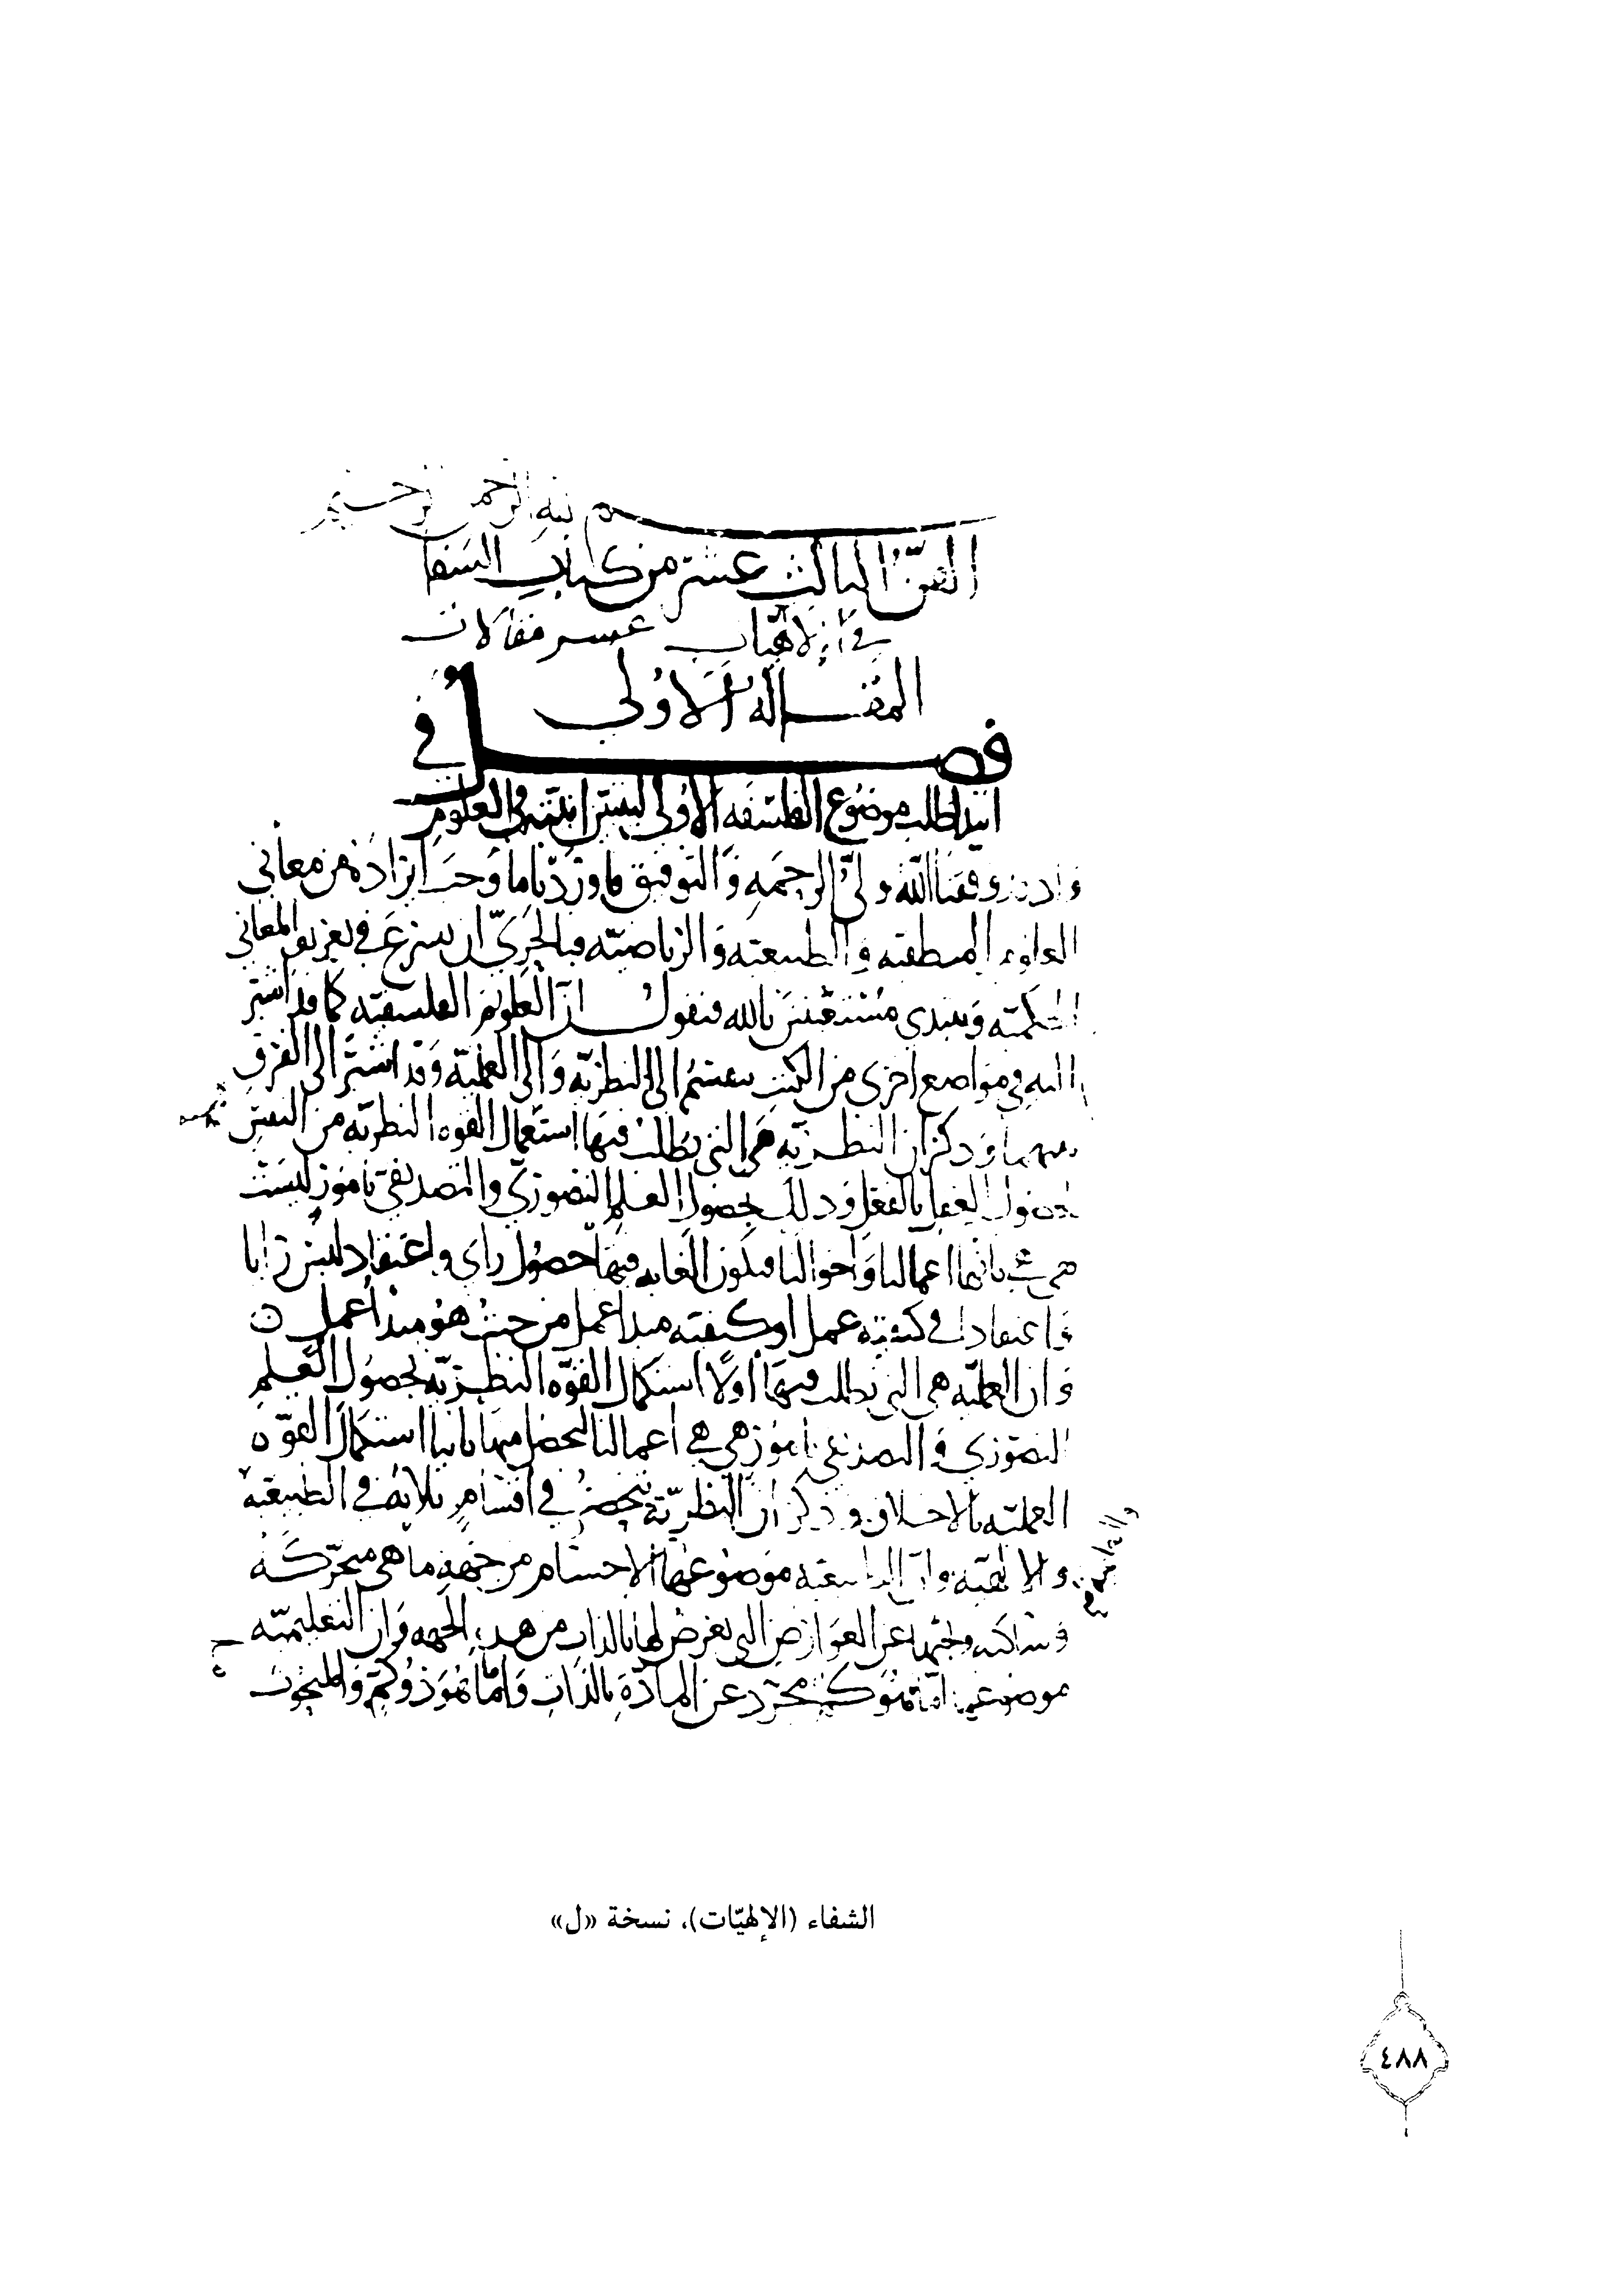 بسم الله الرحمن الرحيم
الفن الثالث عشر من كتاب الشفا
في الإلاهيات عشر مقالات
المقالة الأولى
فصل في
ابتدا طلب موضوع الفلسفة الأولى ليتبين انيته في العلوم
واذ قد وفقنا الله ولي الرحمة والتوفيق فاوردنا ما وجب ايراده من معاني
العلوم المنطقية والطبيعية والرياضية فبالحري ان نشرع في تعريف المعاني
الحكمية ونبتدي مستعينين بالله فنقول ان العلوم الفلسفية كما قد اشير
اليه في مواضع اخرى من الكتب ينقسم الى النظرية والى العملية وقد اشير الى الفرق
بينهما وذكر ان النظرية هي التي يطلب فيها استكمال القوه النظرية من النفس
لحصول العقل بالفعل وذلك بحصول العلم التصوري والتصديقي بامور ليست
هي هي بانها اعمالنا واحوالنا فيكون الغايه فيها حصول راي واعتقاد ليس رايا
واعتقادا في كيفية عمل او كيفية مبدا عمل من حيث هو مبدا عمل
وان العملية هي التي يطلب فيها اولا استكمال القوه النظرية بحصول العلم
التصوري والتصديقي بامور هي هي اعمالنا ليحصل منها ثانيا استكمال القوه
العملية بالاخلاق وذكر ان النظرية تنحصر في اقسام ثلاثة في الطبيعية
والالهية وان الطبيعية موضوعها الاجسام من جهة ما هي متحركة
وساكنة وبحثها عن العوارض التي تعرض لها بالذات من هذه الجهه وان التعليمية
موضوعها اما ما هو كم مجرد عن المادة بالذات واما ما هو ذو كم والمبحوث
والتعليمية
الشفاء (الإلهيّات)، نسخة «ل»
٤٨٨